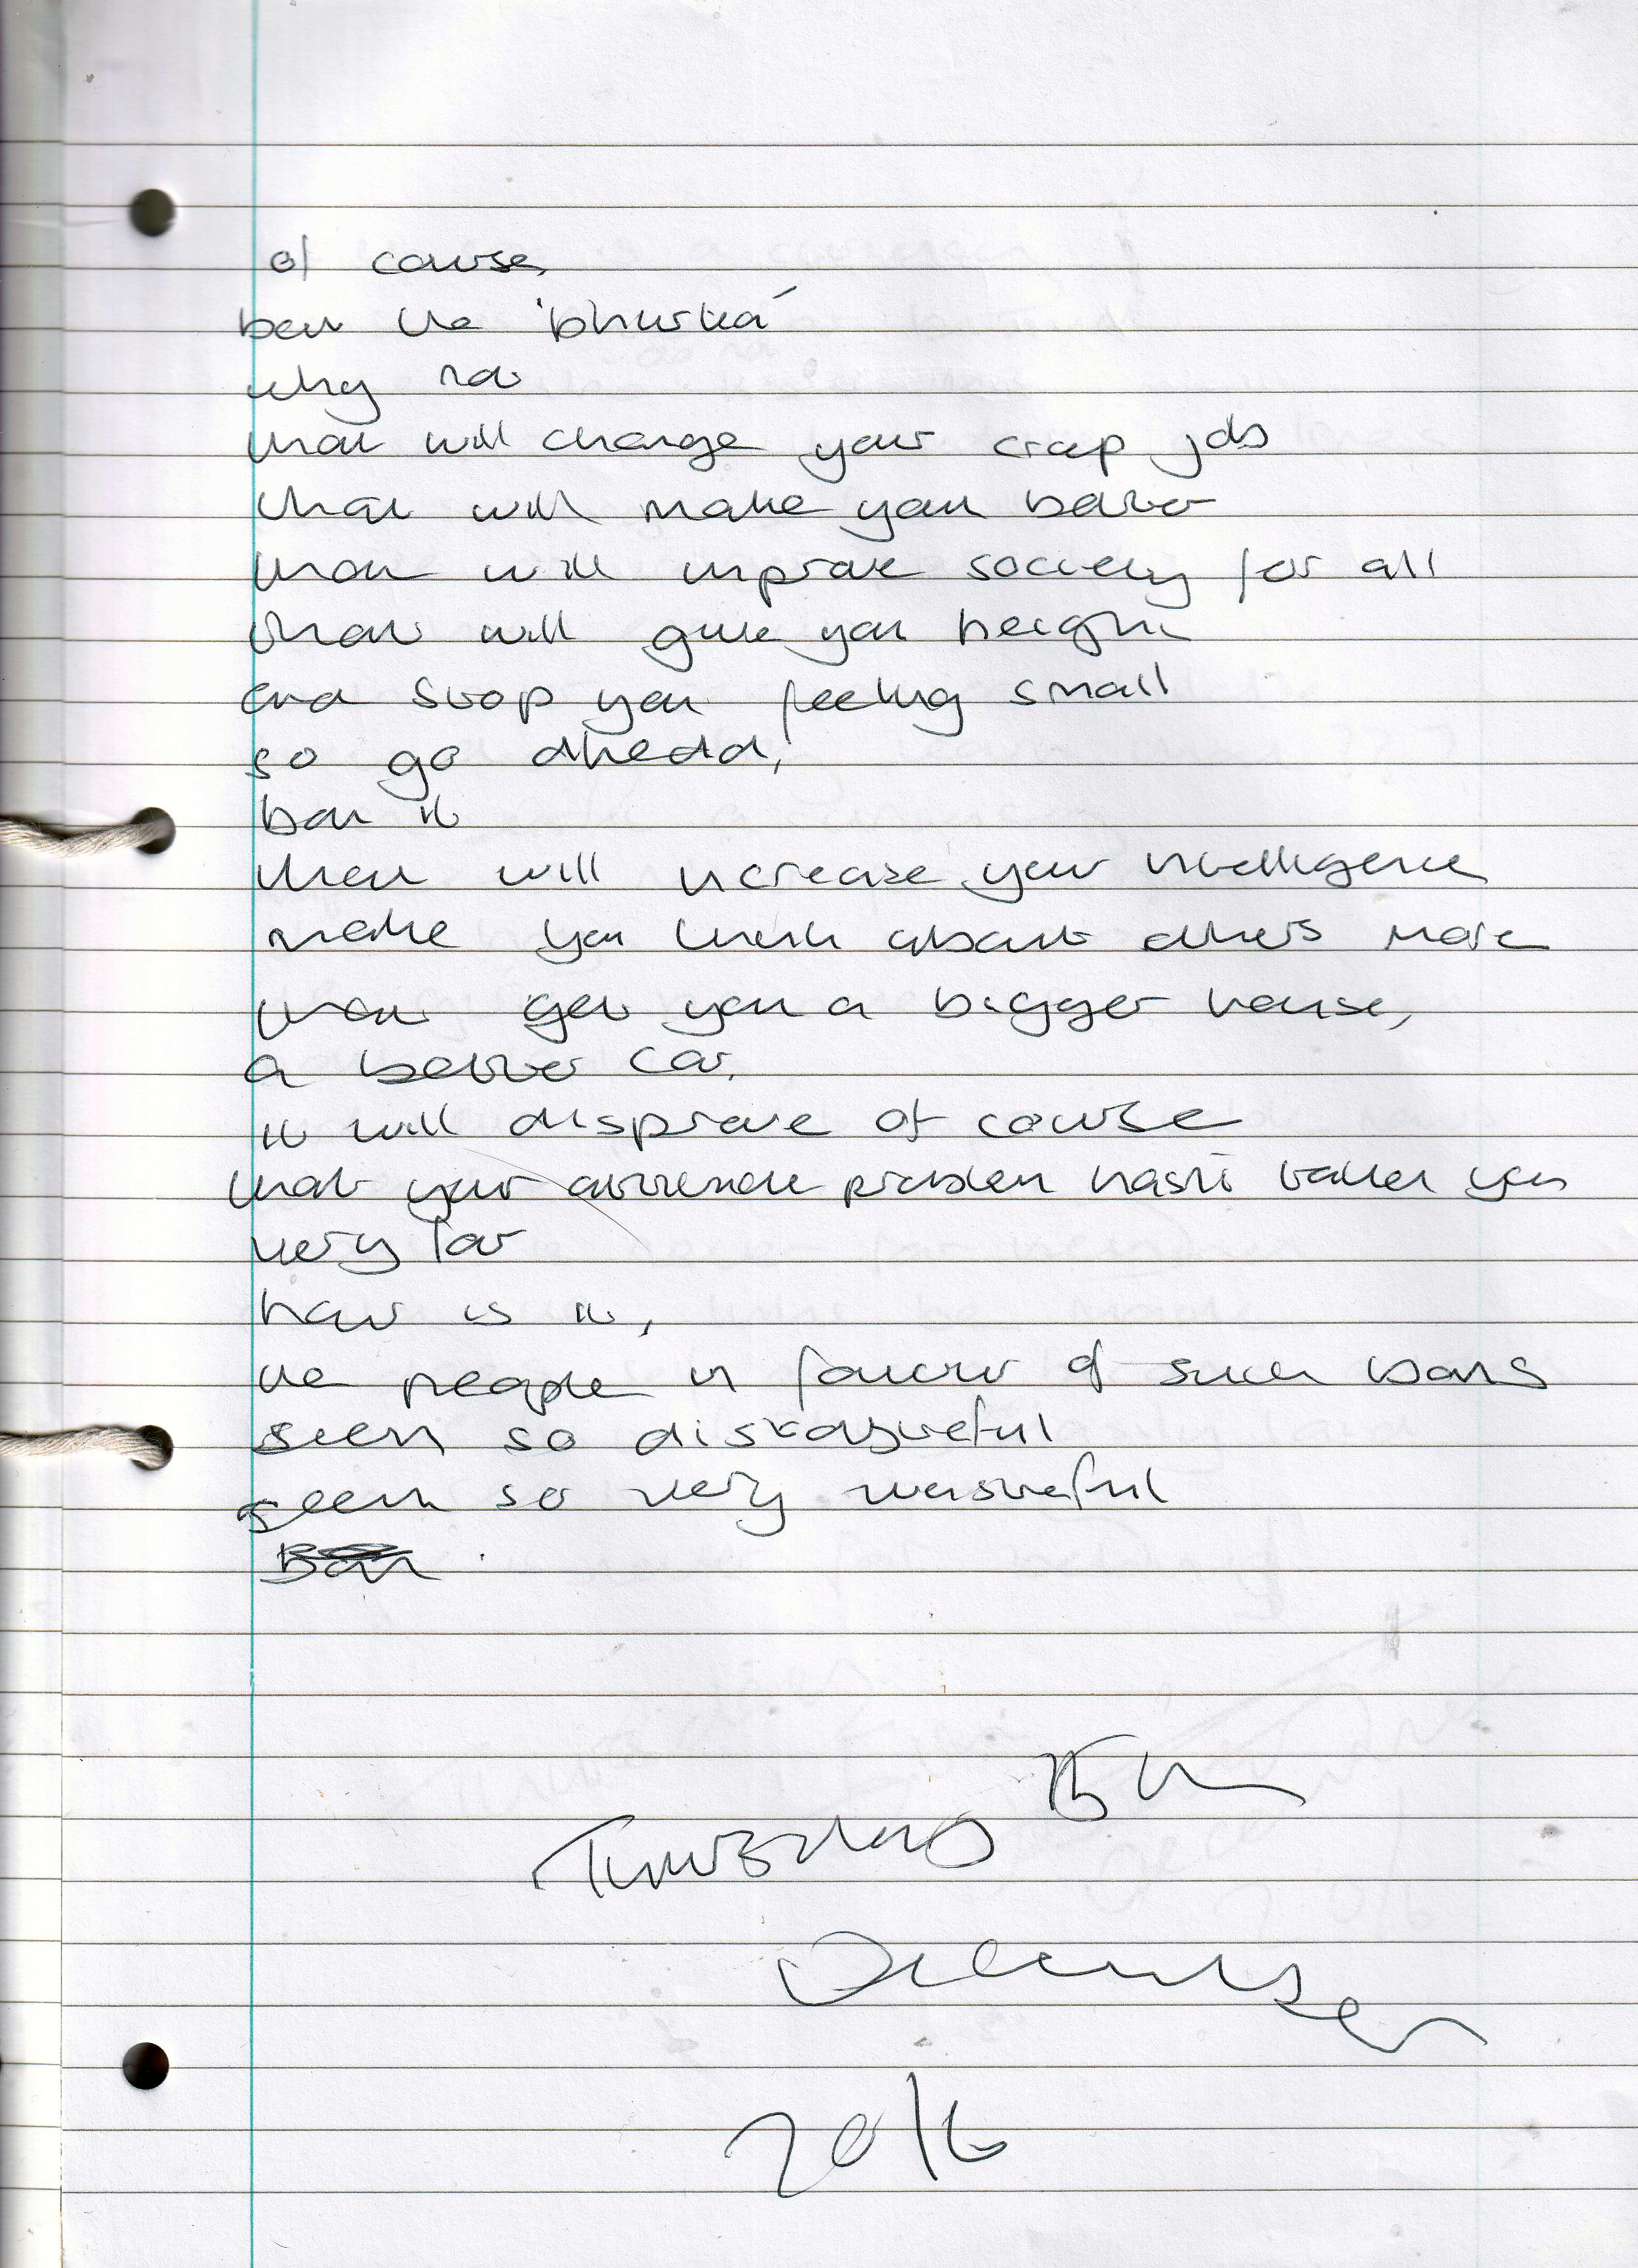 of course,
ban the 'bhurka'
why not
that will change your crap job
that will make you better
that will improve society for all
that will give you height
and stop you feeling small
so go ahead,
ban it
that will increase your intelligence
make you think about others more
that get you a bigger house,
a better car,
it will disprove of course
that your attitude problem hasn't taken you
very far
how is it,
the people in favour of such bans
seem so distasteful
seem so very wasteful
Ban
Thursday 15th
December
2016